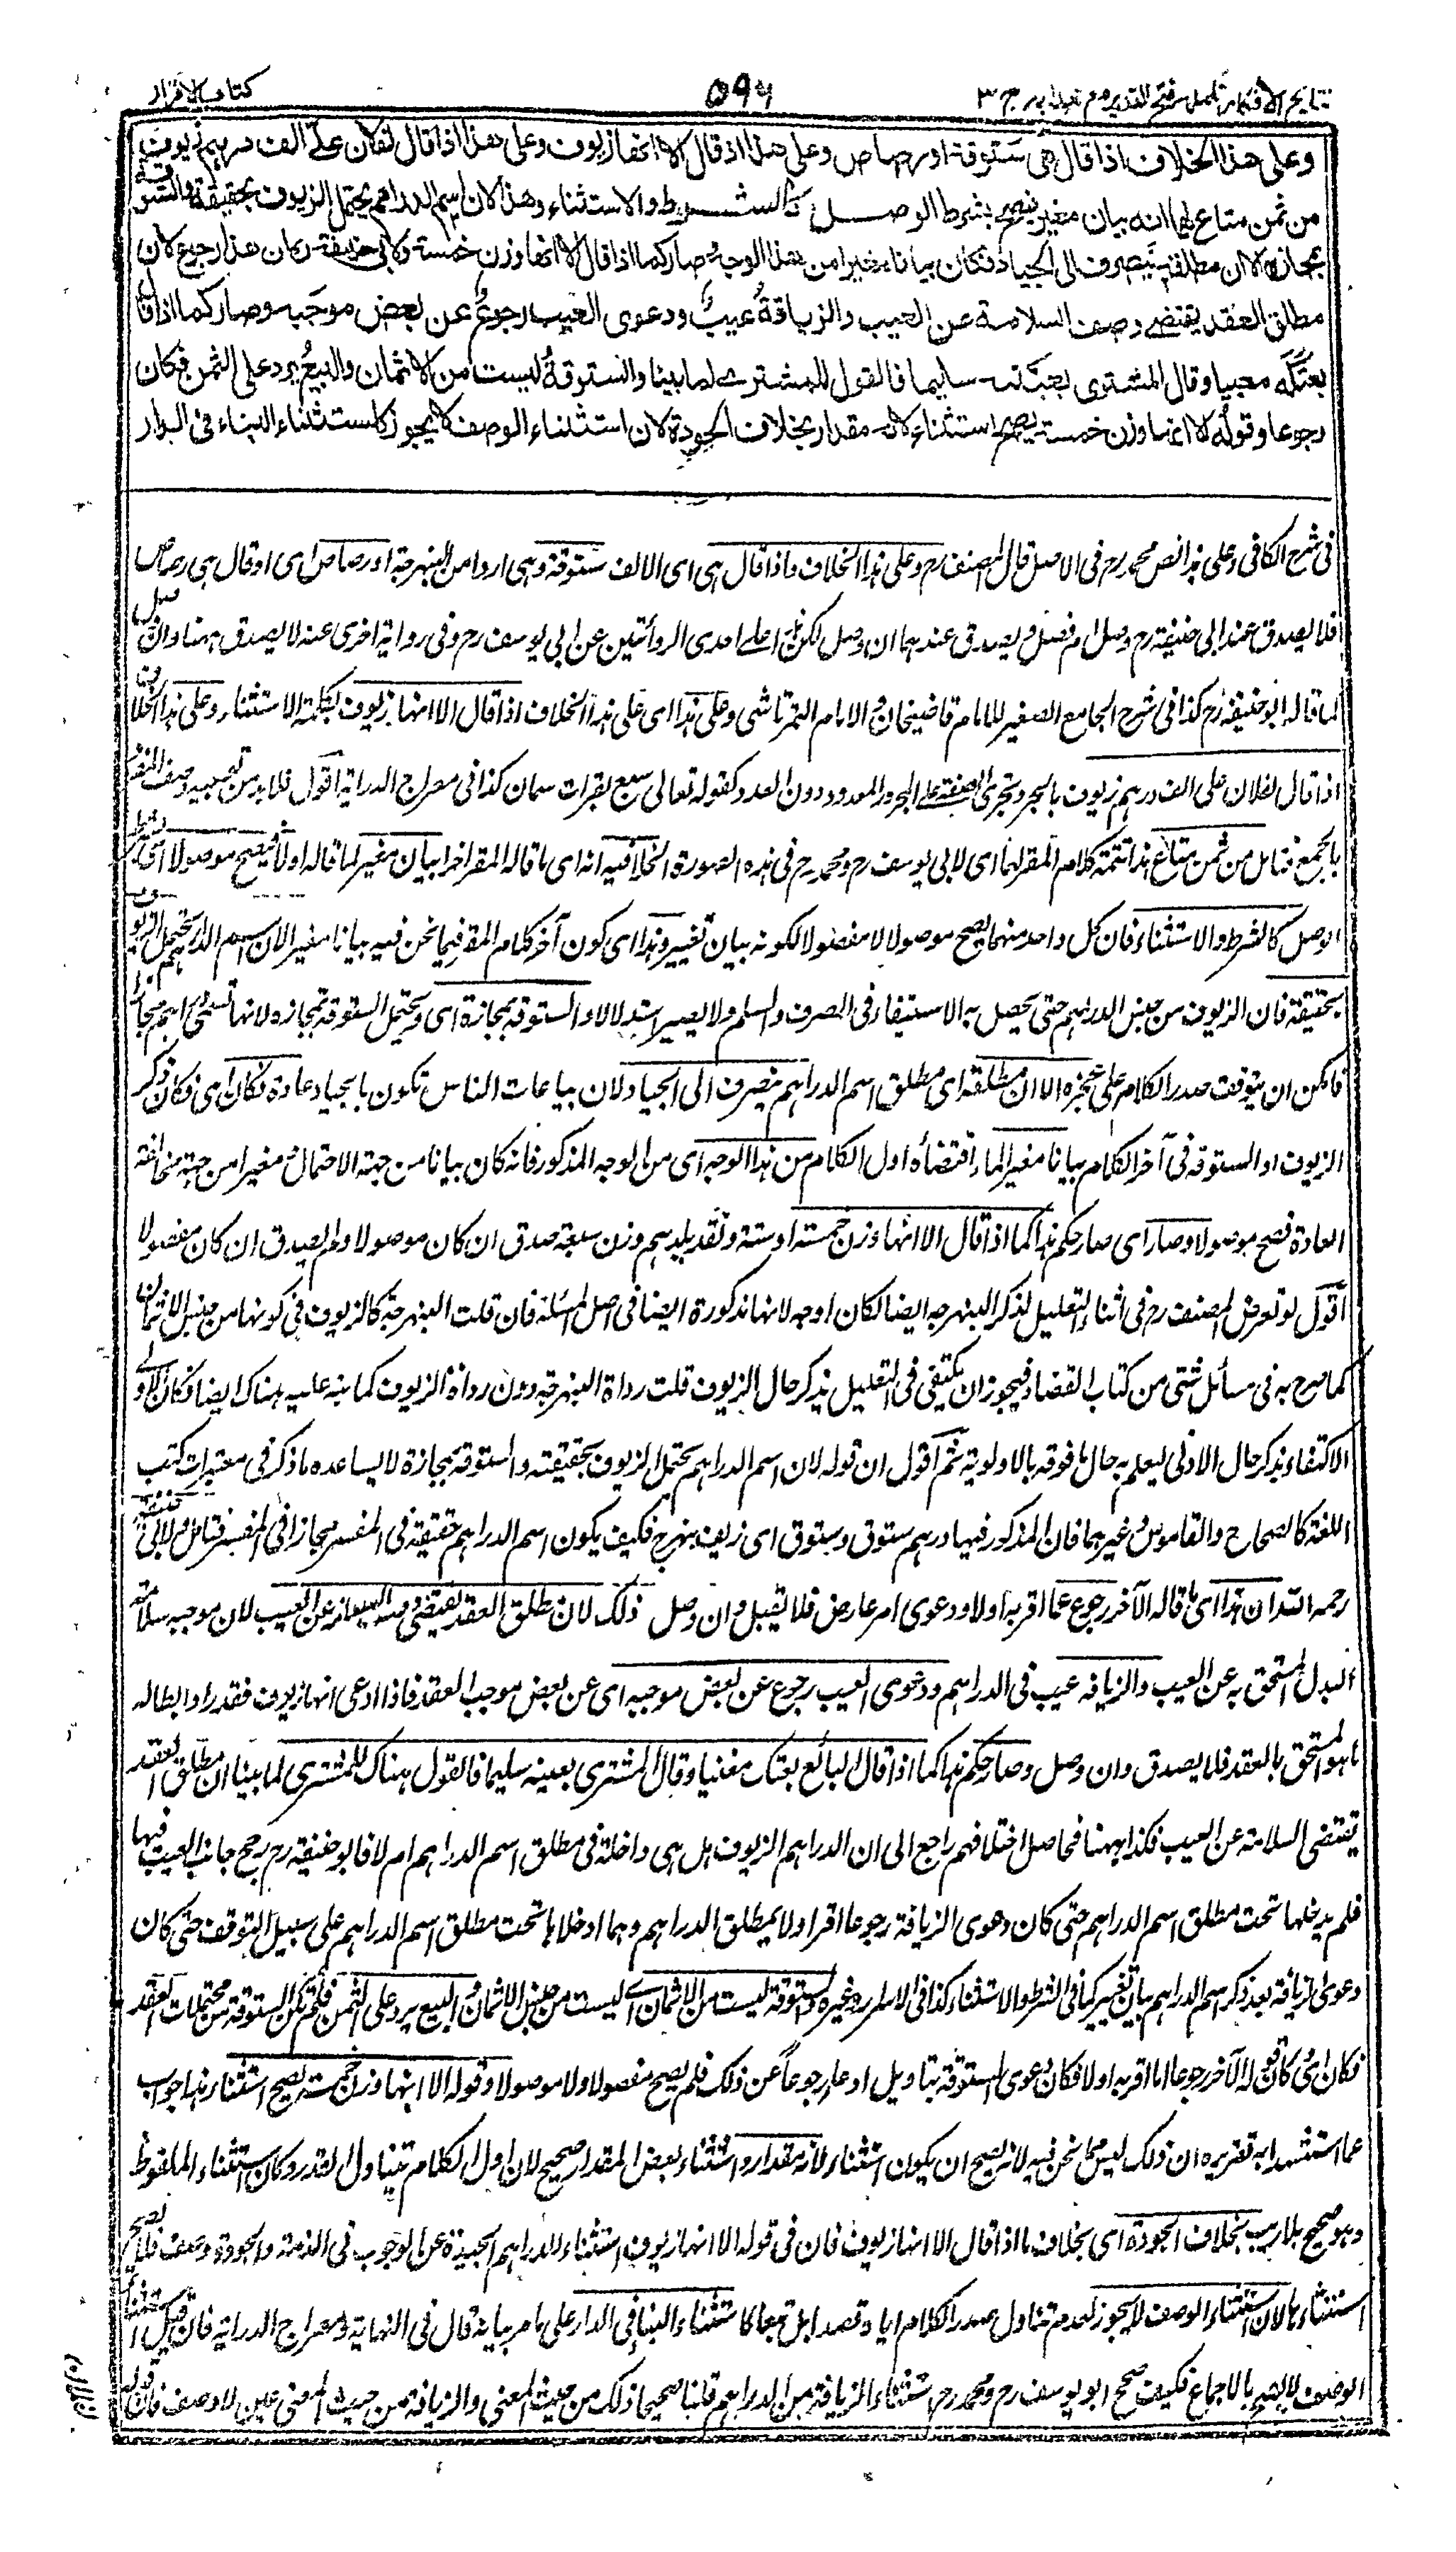 نتایج الافکار تکمل فتح القدیر مع هدایه ج ۳
۵۹۶
کتاب الاقرار
وعلى هذا الخلاف اذا قال هى ستوقة او رصاص وعلى هذا اذا قال الا انها زيوف وعلى هذا اذا قال لفلان على الف درهم زيوف
من ثمن متاع لهما انه بيان مغير فيصح بشرط الوصل كالشرط والاستثناء وهذا لان اسم الدراهم يحتمل الزيوف بحقيقته والستوقة
بمجازه الا ان مطلقه ينصرف الى الجياد فكان بيانا مغيرا من هذا الوجه وصار كما اذا قال الا انها وزن خمسة ولابى حنيفة رح ان هذا رجوع لان
مطلق العقد يقتضى وصف السلامة عن العيب والزيافة عيب ودعوى العيب رجوع عن بعض موجبه وصار كما اذا قال
بعتكه معيبا وقال المشترى بعتنيه سليما فالقول للمشترى لما بينا والستوقة ليست من الاثمان والبيع يرد على الثمن فكان
رجوعا وقوله الا انها وزن خمسة يصح استثناء لانه مقدار بخلاف الجودة لان استثناء الوصف لا يجوز كاستثناء البناء فى الدار
فى شرح الكافى وعلى هذا نص محمد رح فى الاصل قال المصنف رح وعلى هذا الخلاف ماذا قال هى اى الالف ستوقة وهى اردأ من البنهرجة او رصاص اى او قال هى رصاص
فلا يصدق عند ابى حنيفة رح وصل ام فصل ويصدق عندهما ان وصل لكن هذا على احدى الروايتين عن ابى يوسف رح وفى رواية اخرى عنه لا يصدق ههنا وان وصل
كما قاله ابو حنيفة رح كذا فى شرح الجامع الصغير للامام قاضيخان والامام التمرتاشى وعلى هذا اى على هذا الخلاف اذا قال الا انها زيوف بكلمة الاستثناء وعلى هذا الخلاف
اذا قال لفلان على الف درهم زيوف بالجر ويجرى الصفة على المجرور المعدود دون العدد كقوله تعالى سبع بقرات سمان كذا فى معراج الدراية اقول فلا بد من توجيه وصف المفرد
بالجمع فتامل من ثمن متاع هذا تتمة كلام المقر لهما اى لابى يوسف رح ومحمد رح فى هذه الصورة الخلافية انه اى ما قاله المقر اخرا بيان مغير لما قاله اولا فيصح موصولا اى بشرط
الوصل كالشرط والاستثناء فان كل واحد منهما يصح موصولا لا مفصولا لكونه بيان تغيير وهذا اى كون آخر كلام المقر فيما نحن فيه بيانا مغيرا لان اسم الدراهم يحتمل الزيوف
بحقيقته فان الزيوف من جنس الدراهم حتى يحصل به الاستيفاء فى الصرف والسلم ولا يصير استبدالا والستوقة بمجازه اى ويحتمل الستوقة بمجازه لانها تسمى دراهم مجازا
فامكن ان يتوقف صدر الكلام على عجزه الا ان مطلقه اى مطلق اسم الدراهم ينصرف الى الجياد لان بياعات الناس تكون بالجياد عادة فكان اى فكان ذكر
الزيوف او الستوقة فى آخر الكلام بيانا مغيرا لما اقتضاه اول الكلام من هذا الوجه اى من الوجه المذكور فانه كان بيانا من جهة الاحتمال ومغيرا من جهة مخالفة
العادة فصح موصولا وصار اى صار حكم هذا كما اذا قال الا انها وزن خمسة او ستة ونقد بلدهم وزن سبعة صدق ان كان موصولا ولم يصدق ان كان مفصولا
اقول لو تعرض المصنف رح فى اثناء التعليل لذكر البنهرجة ايضا لكان اوجه لانها مذكورة ايضا فى اصل المسئلة فان قلت البنهرجة كالزيوف فى كونها من جنس الاثمان
كما صرح به فى مسائل شتى من كتاب القضاء فيجوز ان يكتفى فى التعليل بذكر حال الزيوف قلت رداءة البنهرجة دون رداءة الزيوف كما نبه عليه هناك ايضا فكان الاولى
الاكتفاء بذكر حال الادنى ليعلم به حال ما فوقه بالاولوية ثم اقول ان قوله لان اسم الدراهم يحتمل الزيوف بحقيقته والستوقة بمجازه لا يساعده ما ذكر فى معتبرات كتب
اللغة كالصحاح والقاموس وغيرهما فان المذكور فيها درهم ستوق وستوق اى زيف بهرج فكيف يكون اسم الدراهم حقيقة فى المفسر مجازا فى المفسر فتامل ولابى حنيفة
رحمه الله ان هذا اى ما قاله الآخر رجوع عما اقر به اولا ودعوى امر عارض فلا يقبل وان وصل ذلك لان مطلق العقد يقتضى وصف السلامة عن العيب لان موجبه سلامة
البدل المستحق به عن العيب والزيافة عيب فى الدراهم ودعوى العيب رجوع عن بعض موجبه اى عن بعض موجب العقد فاذا ادعى انها زيوف فقد اراد ابطال
ما هو المستحق بالعقد فلا يصدق وان وصل وصار حكم هذا كما اذا قال البائع بعتك معيبا وقال المشترى بعتنيه سليما فالقول هناك للمشترى لما بينا ان مطلق العقد
يقتضى السلامة عن العيب فكذا ههنا فحاصل اختلافهم راجع الى ان الدراهم الزيوف هل هى داخلة فى مطلق اسم الدراهم ام لا فابو حنيفة رح رجح جانب العيب فيها
فلم يدخلها تحت مطلق اسم الدراهم حتى كان دعوى الزيافة رجوعا عما اقر اولا بمطلق الدراهم وهما ادخلاها تحت مطلق اسم الدراهم على سبيل التوقف حتى كان
دعوى الزيافة بعد ذكر اسم الدراهم بيان تغيير كما فى الشرط والاستثناء كذا فى الاسرار وغيره والستوقة ليست من الاثمان اى ليست من جنس الاثمان والبيع يرد على الثمن فلم تكن الستوقة من محتملات العقد
فكان اى كان قوله الآخر رجوعا عما اقر به اولا فكان دعوى الستوقة بتاويل ادعاء رجوعا عن ذلك فلم يصح مفصولا ولا موصولا وقوله الا انها وزن خمسة يصح استثناء هذا جواب
عما استشهدا به تقريره ان ذلك ليس مما نحن فيه لانه يصح ان يكون استثناء لانه مقدار واستثناء بعض المقدار صحيح لان اول الكلام يتناول القدر وكان استثناء الملفوظ
وهو صحيح بلا ريب بخلاف الجودة اى بخلاف ما اذا قال الا انها زيوف فان فى قوله الا انها زيوف استثناء للدراهم الجيدة عن الوجوب فى الذمة والجودة وصف فلا يصح
استثناءها لان استثناء الوصف لا يجوز لعدم تناول صدر الكلام اياه قصدا بل تبعا كاستثناء البناء فى الدار على ما مر بيانه قال فى النهاية ومعراج الدراية فان قيل استثناء
الوصف لا يصح بالاجماع فكيف صحح ابو يوسف رح ومحمد رح استثناء الزيافة من الدراهم قلنا صححا ذلك من حيث المعنى والزيافة من حيث المعنى عين لا وصف فان قوله